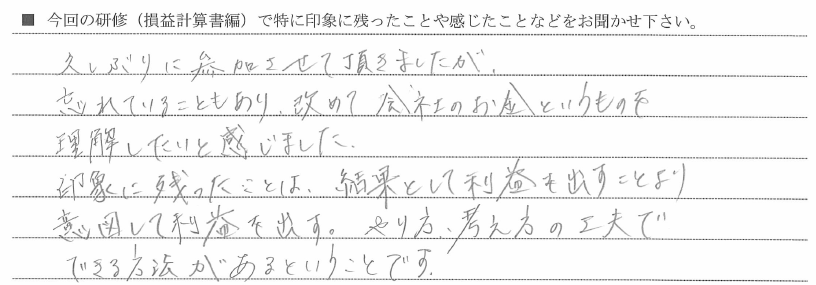 ■ 今回の研修（損益計算書編）で特に印象に残ったことや感じたことなどをお聞かせ下さい。
久しぶりに参加させて頂きましたが、
忘れていることもあり、改めて会社のお金というものを
理解したいと感じました。
印象に残ったことは、結果として利益を出すことより
意図して利益を出す。やり方、考え方の工夫で
できる方法があるということです。